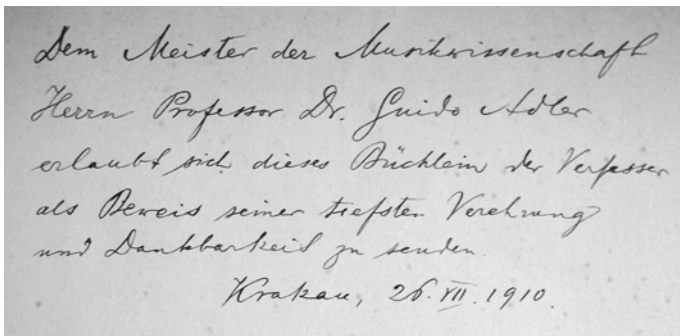 Dem Meister der Musikwissenschaft
Herrn Professor Dr. Guido Adler
erlaubt sich dieses Büchlein der Verfasser
als Beweis seiner tiefsten Verehrung
und Dankbarkeit zu senden.
Krakau, 26.VII.1910.